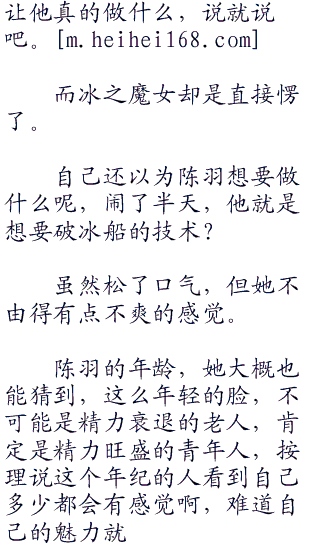 让他真的做什么，说就说
吧。[m.heihei168.com]
而冰之魔女却是直接愣
了。
自己还以为陈羽想要做
什么呢，闹了半天，他就是
想要破冰船的技术？
虽然松了口气，但她不
由得有点不爽的感觉。
陈羽的年龄，她大概也
能猜到，这么年轻的脸，不
可能是精力衰退的老人，肯
定是精力旺盛的青年人，按
理说这个年纪的人看到自己
多少都会有感觉啊，难道自
己的魅力就